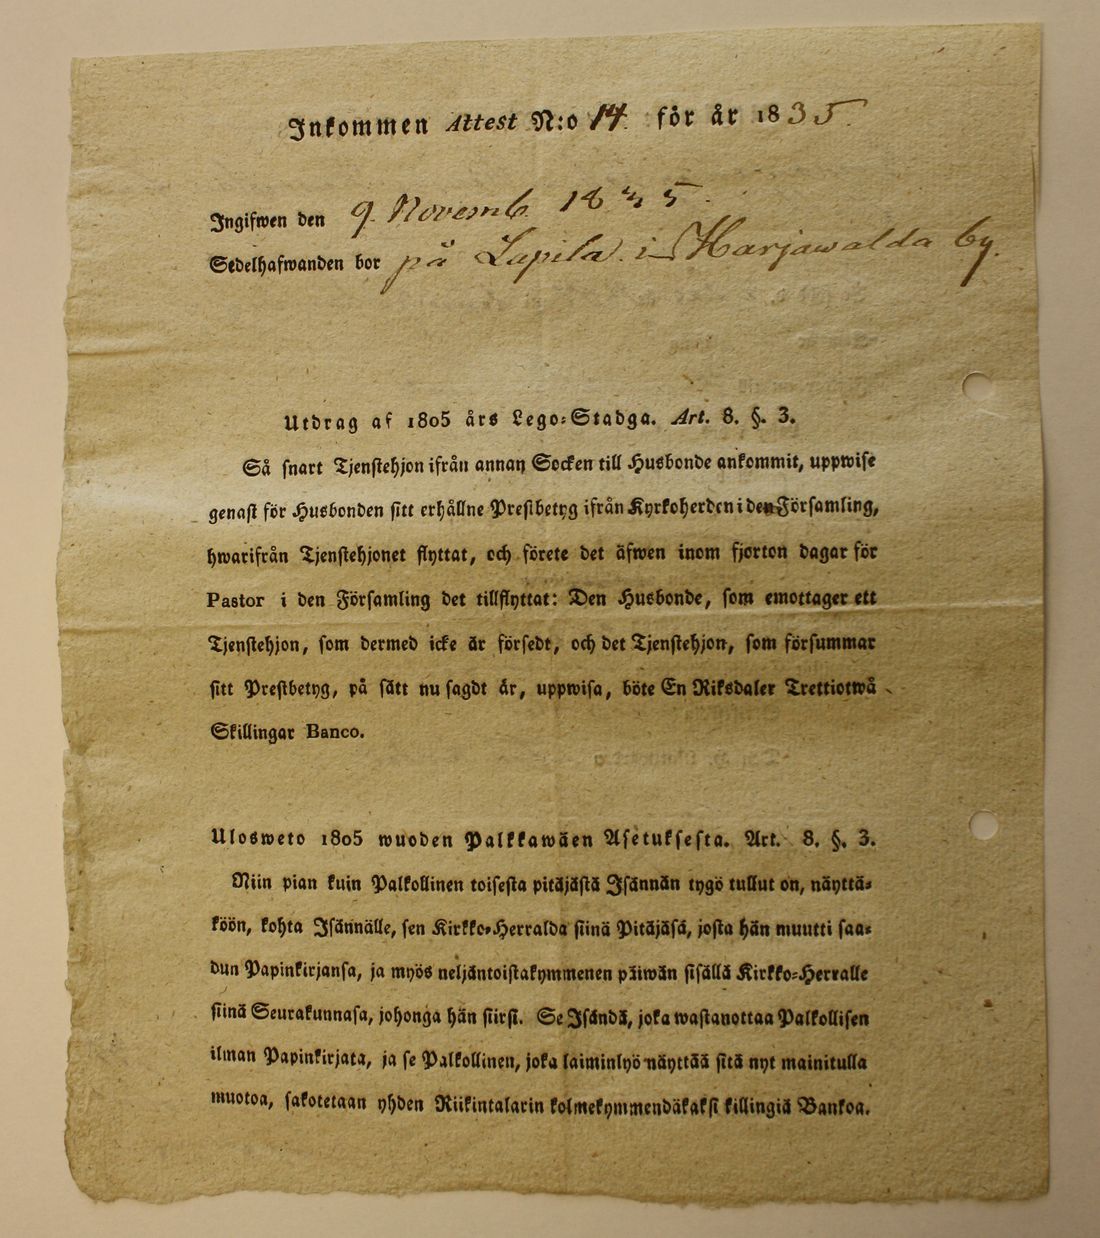 Inkommen Attest N:o 14. för år 1835.
Ingifwen den 9. Novemb. 1835.
Sedelhafwanden bor på Lapila i Harjawalda by.
Utdrag af 1805 års Lego-Stadga. Art. 8. §. 3.
Så snart Tjenstehjon ifrån annan Socken till Husbonde ankommit, uppwise
genast för Husbonden sitt erhållne Prestbetyg ifrån Kyrkoherden i den Församling,
hwarifrån Tjenstehjonet flyttat, och förete det äfwen inom fjorton dagar för
Pastor i den Församling det tillflyttat: Den Husbonde, som emottager ett
Tjenstehjon, som dermed icke är försedt, och det Tjenstehjon, som försummar
sitt Prestbetyg, på sätt nu sagdt är, uppwisa, böte En Riksdaler Trettiotwå
Skillingar Banco.
Ulosweto 1805 wuoden Palkkawäen Asetuksesta. Art. 8. §. 3.
Niin pian kuin Palkollinen toisesta pitäjästä Isännän tygö tullut on, näyttä-
köön, kohta Isännälle, sen Kirkko-Herralda siinä Pitäjäsä, josta hän muutti saa-
dun Papinkirjansa, ja myös neljäntoistakymmenen päiwän sisällä Kirkko-Herralle
siinä Seurakunnasa, johonga hän siirsi. Se Isändä, joka wastanottaa Palkollisen
ilman Papinkirjata, ja se Palkollinen, joka laiminlyö näyttää sitä nyt mainitulla
muotoa, sakotetaan yhden Riikintalarin kolmekymmendäkaksi killingiä Bankoa.